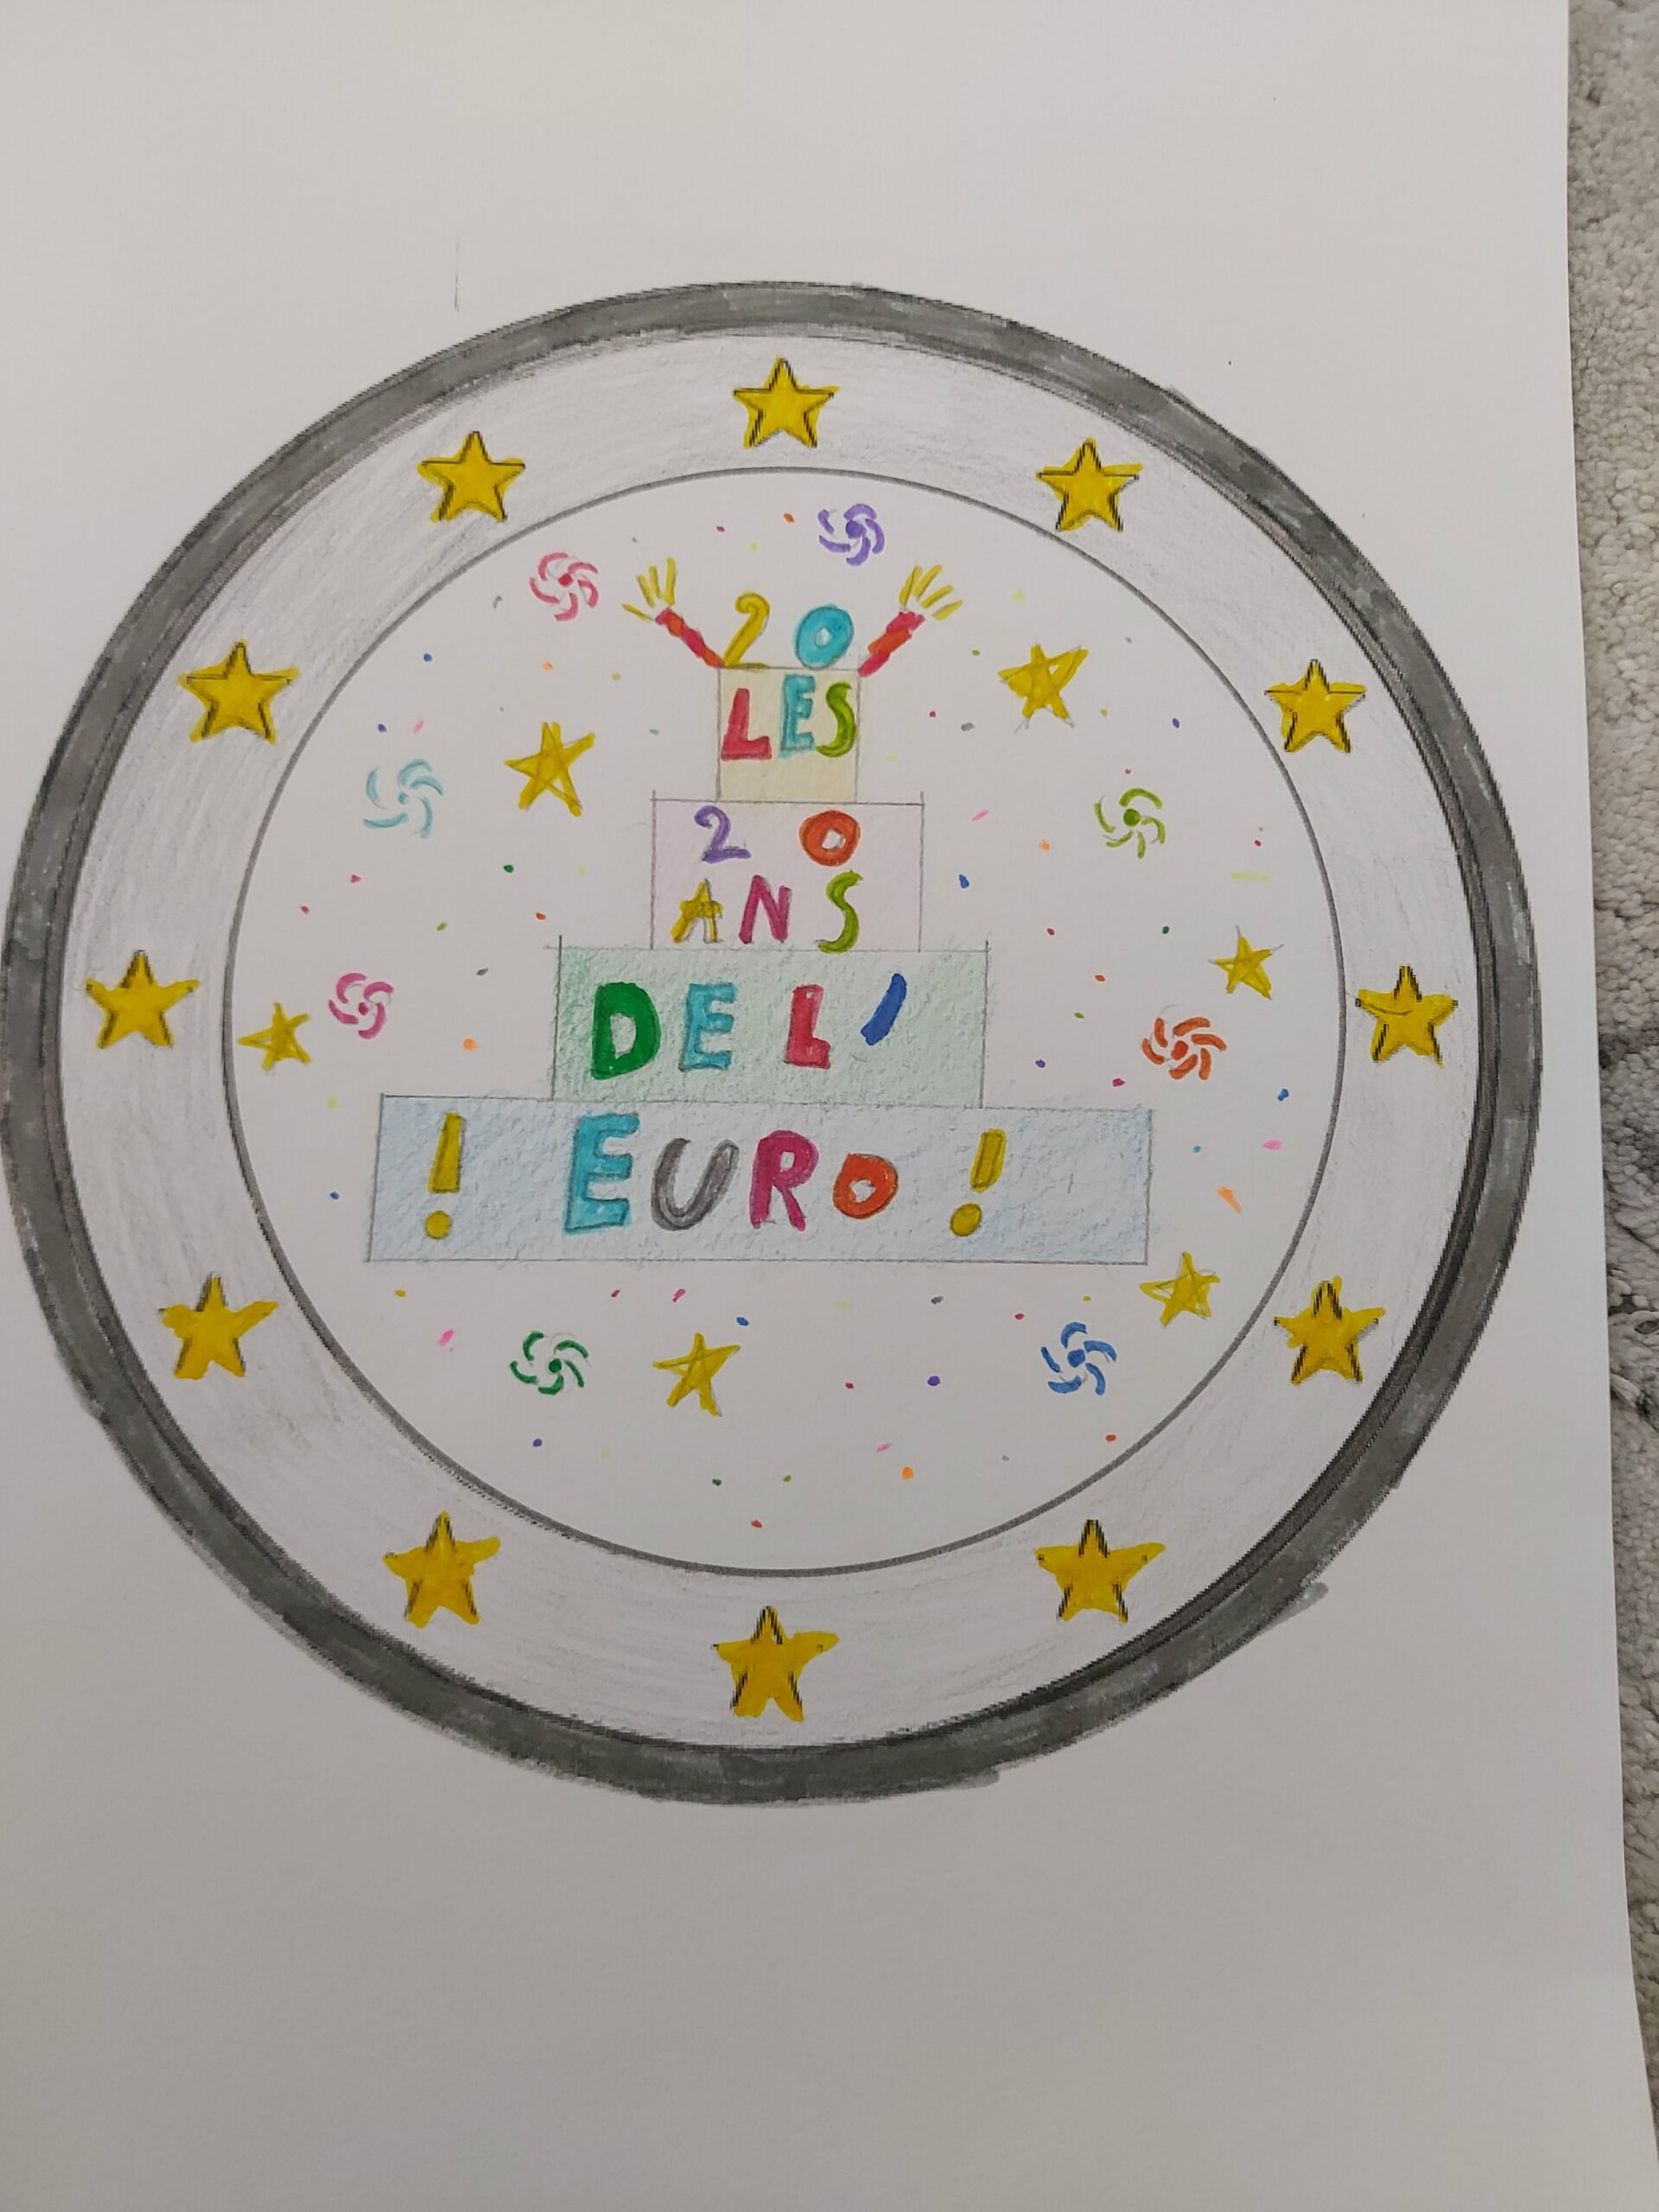 20
LES
20
ANS
DE L'
! EURO !